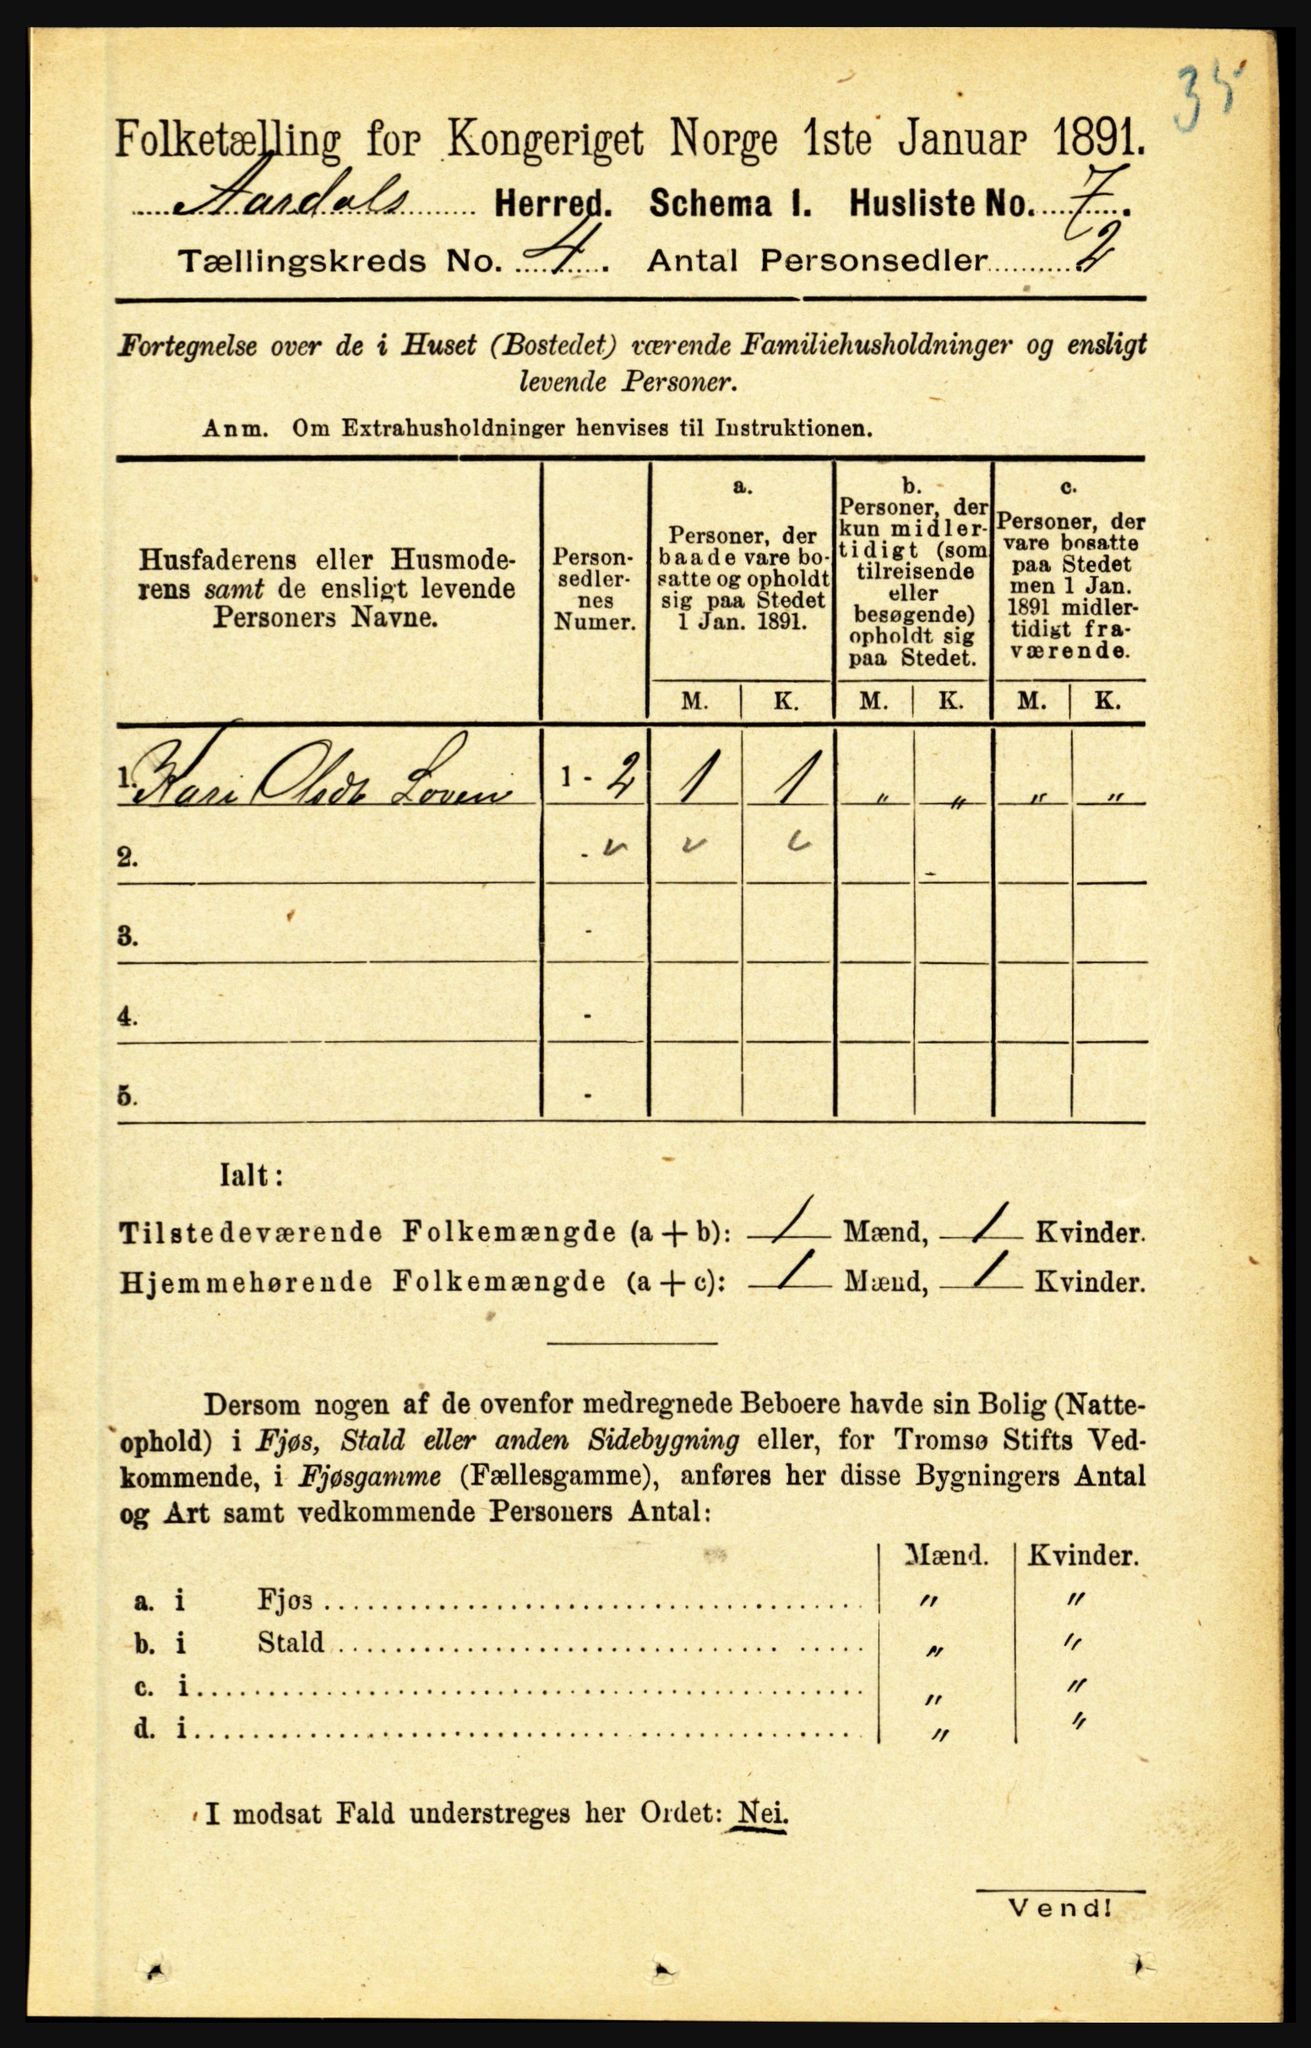 35
Folketælling for Kongeriget Norge 1ste Januar 1891.
Aardals Herred. Schema 1. Husliste No. 7.
Tællingskreds No. 4. Antal Personsedler 2
Fortegnelse over de i Huset (Bostedet) værende Familiehusholdninger og ensligt
levende Personer.
Anm. Om Extrahusholdninger henvises til Instruktionen.
Husfaderens eller Husmode-
rens samt de ensligt levende
Personers Navne.
Person-
sedler-
nes
Numer.
a.
Personer, der
baade vare bo-
satte og opholdt
sig paa Stedet
1 Jan. 1891.
b.
Personer, der
kun midler-
tidigt (som
tilreisende
eller
besøgende)
opholdt sig
paa Stedet.
c.
Personer, der
vare bosatte
paa Stedet
men 1 Jan.
1891 midler-
tidigt fra-
værende.
M. K. M. K. M. K.
1. Kari Olsdt Loven 1 - 2 1 1 " " " "
2. -
3. -
4. -
5. -
Ialt:
Tilstedeværende Folkemængde (a + b): 1 Mænd, 1 Kvinder.
Hjemmehørende Folkemængde (a + c): 1 Mænd, 1 Kvinder.
Dersom nogen af de ovenfor medregnede Beboere havde sin Bolig (Natte-
ophold) i Fjøs, Stald eller anden Sidebygning eller, for Tromsø Stifts Ved-
kommende, i Fjøsgamme (Fællesgamme), anføres her disse Bygningers Antal
og Art samt vedkommende Personers Antal:
Mænd. Kvinder.
a. i Fjøs " "
b. i Stald " "
c. i " "
d. i " "
I modsat Fald understreges her Ordet: Nei.
Vend!